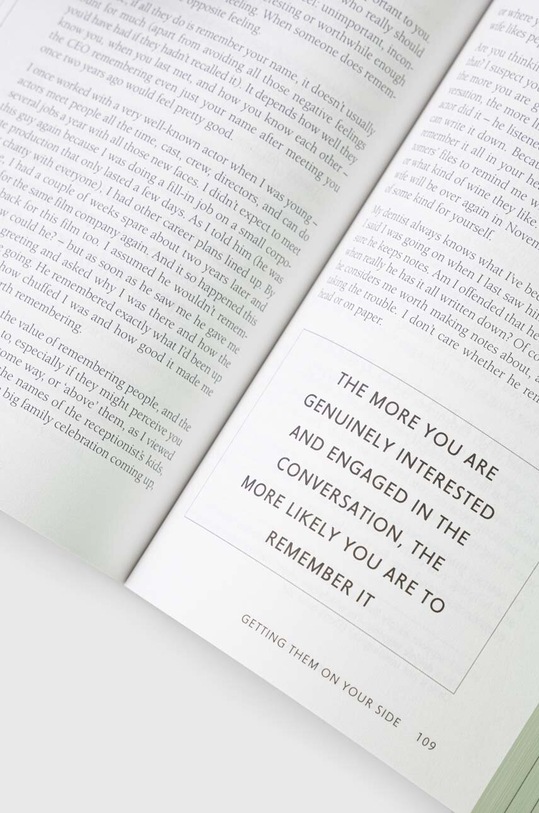 ortant to you.
who really should
el: unimportant, incon-
resting or worthwhile enough
feeling. When someone does remem-
opposite feeling.
if all they do is remember your name, it doesn't usually
ount for much (apart from avoiding all those negative feelings
you'd have had if they hadn't recalled it). It depends how well they
know you, when you last met, and how you know each other –
the CEO remembering even just your name after meeting you
once two years ago would feel pretty good.
I once worked with a very well-known actor when I was young –
actors meet people all the time, cast, crew, directors, and can do
several jobs a year with all those new faces. I didn't expect to meet
this guy again because I was doing a fill-in job on a small corpo-
te production that only lasted a few days. As I told him (he was
chatty with everyone), I had other career plans lined up. By
I had a couple of weeks spare about two years later and
for the same film company again. And it so happened this
back for this film too. I assumed he wouldn't remem-
w could he? – but as soon as he saw me he gave me
greeting and asked why I was there and how the
going. He remembered exactly what I'd been up
how chuffed I was and how good it made me
rth remembering.
the value of remembering people, and the
to, especially if they might perceive you
ome way, or 'above' them, as I viewed
the names of the receptionist's kids,
big family celebration coming up,
or where y
wife likes pep
Are you think
that? I suspect you
the more you are g
versation, the more
actor did it – he listene
can write it down. Becau
remember it all in your he
tomers' files to remind me w
or what kind of wine they like
wife will be over again in Novem
of some kind for yourself.
My dentist always knows what I've bee
I said I was going on when I last saw hir
sure he keeps notes. Am I offended that he
when really he has it all written down? Of c
he considers me worth making notes about, a
taking the trouble. I don't care whether he ren
head or on paper.
THE MORE YOU ARE
GENUINELY INTERESTED
AND ENGAGED IN THE
CONVERSATION, THE
MORE LIKELY YOU ARE TO
REMEMBER IT
GETTING THEM ON YOUR SIDE 109